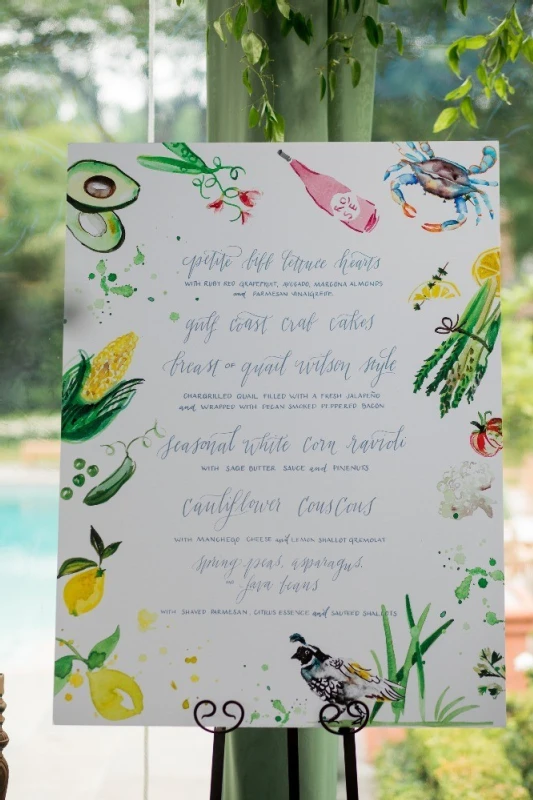 ROSÉ
petite bibb lettuce hearts
WITH RUBY RED GRAPEFRUIT, AVOCADO, MARCONA ALMONDS
and PARMESAN VINAIGRETTE
gulf coast crab cakes
breast OF quail wilson style
CHARGRILLED QUAIL FILLED WITH A FRESH JALAPEÑO
and WRAPPED WITH PECAN SMOKED PEPPERED BACON
seasonal white corn ravioli
WITH SAGE BUTTER SAUCE and PINENUTS
cauliflower couscous
WITH MANCHEGO CHEESE and LEMON SHALLOT GREMOLATA
spring peas, asparagus,
AND fava beans
WITH SHAVED PARMESAN, CITRUS ESSENCE and SAUTEED SHALLOTS